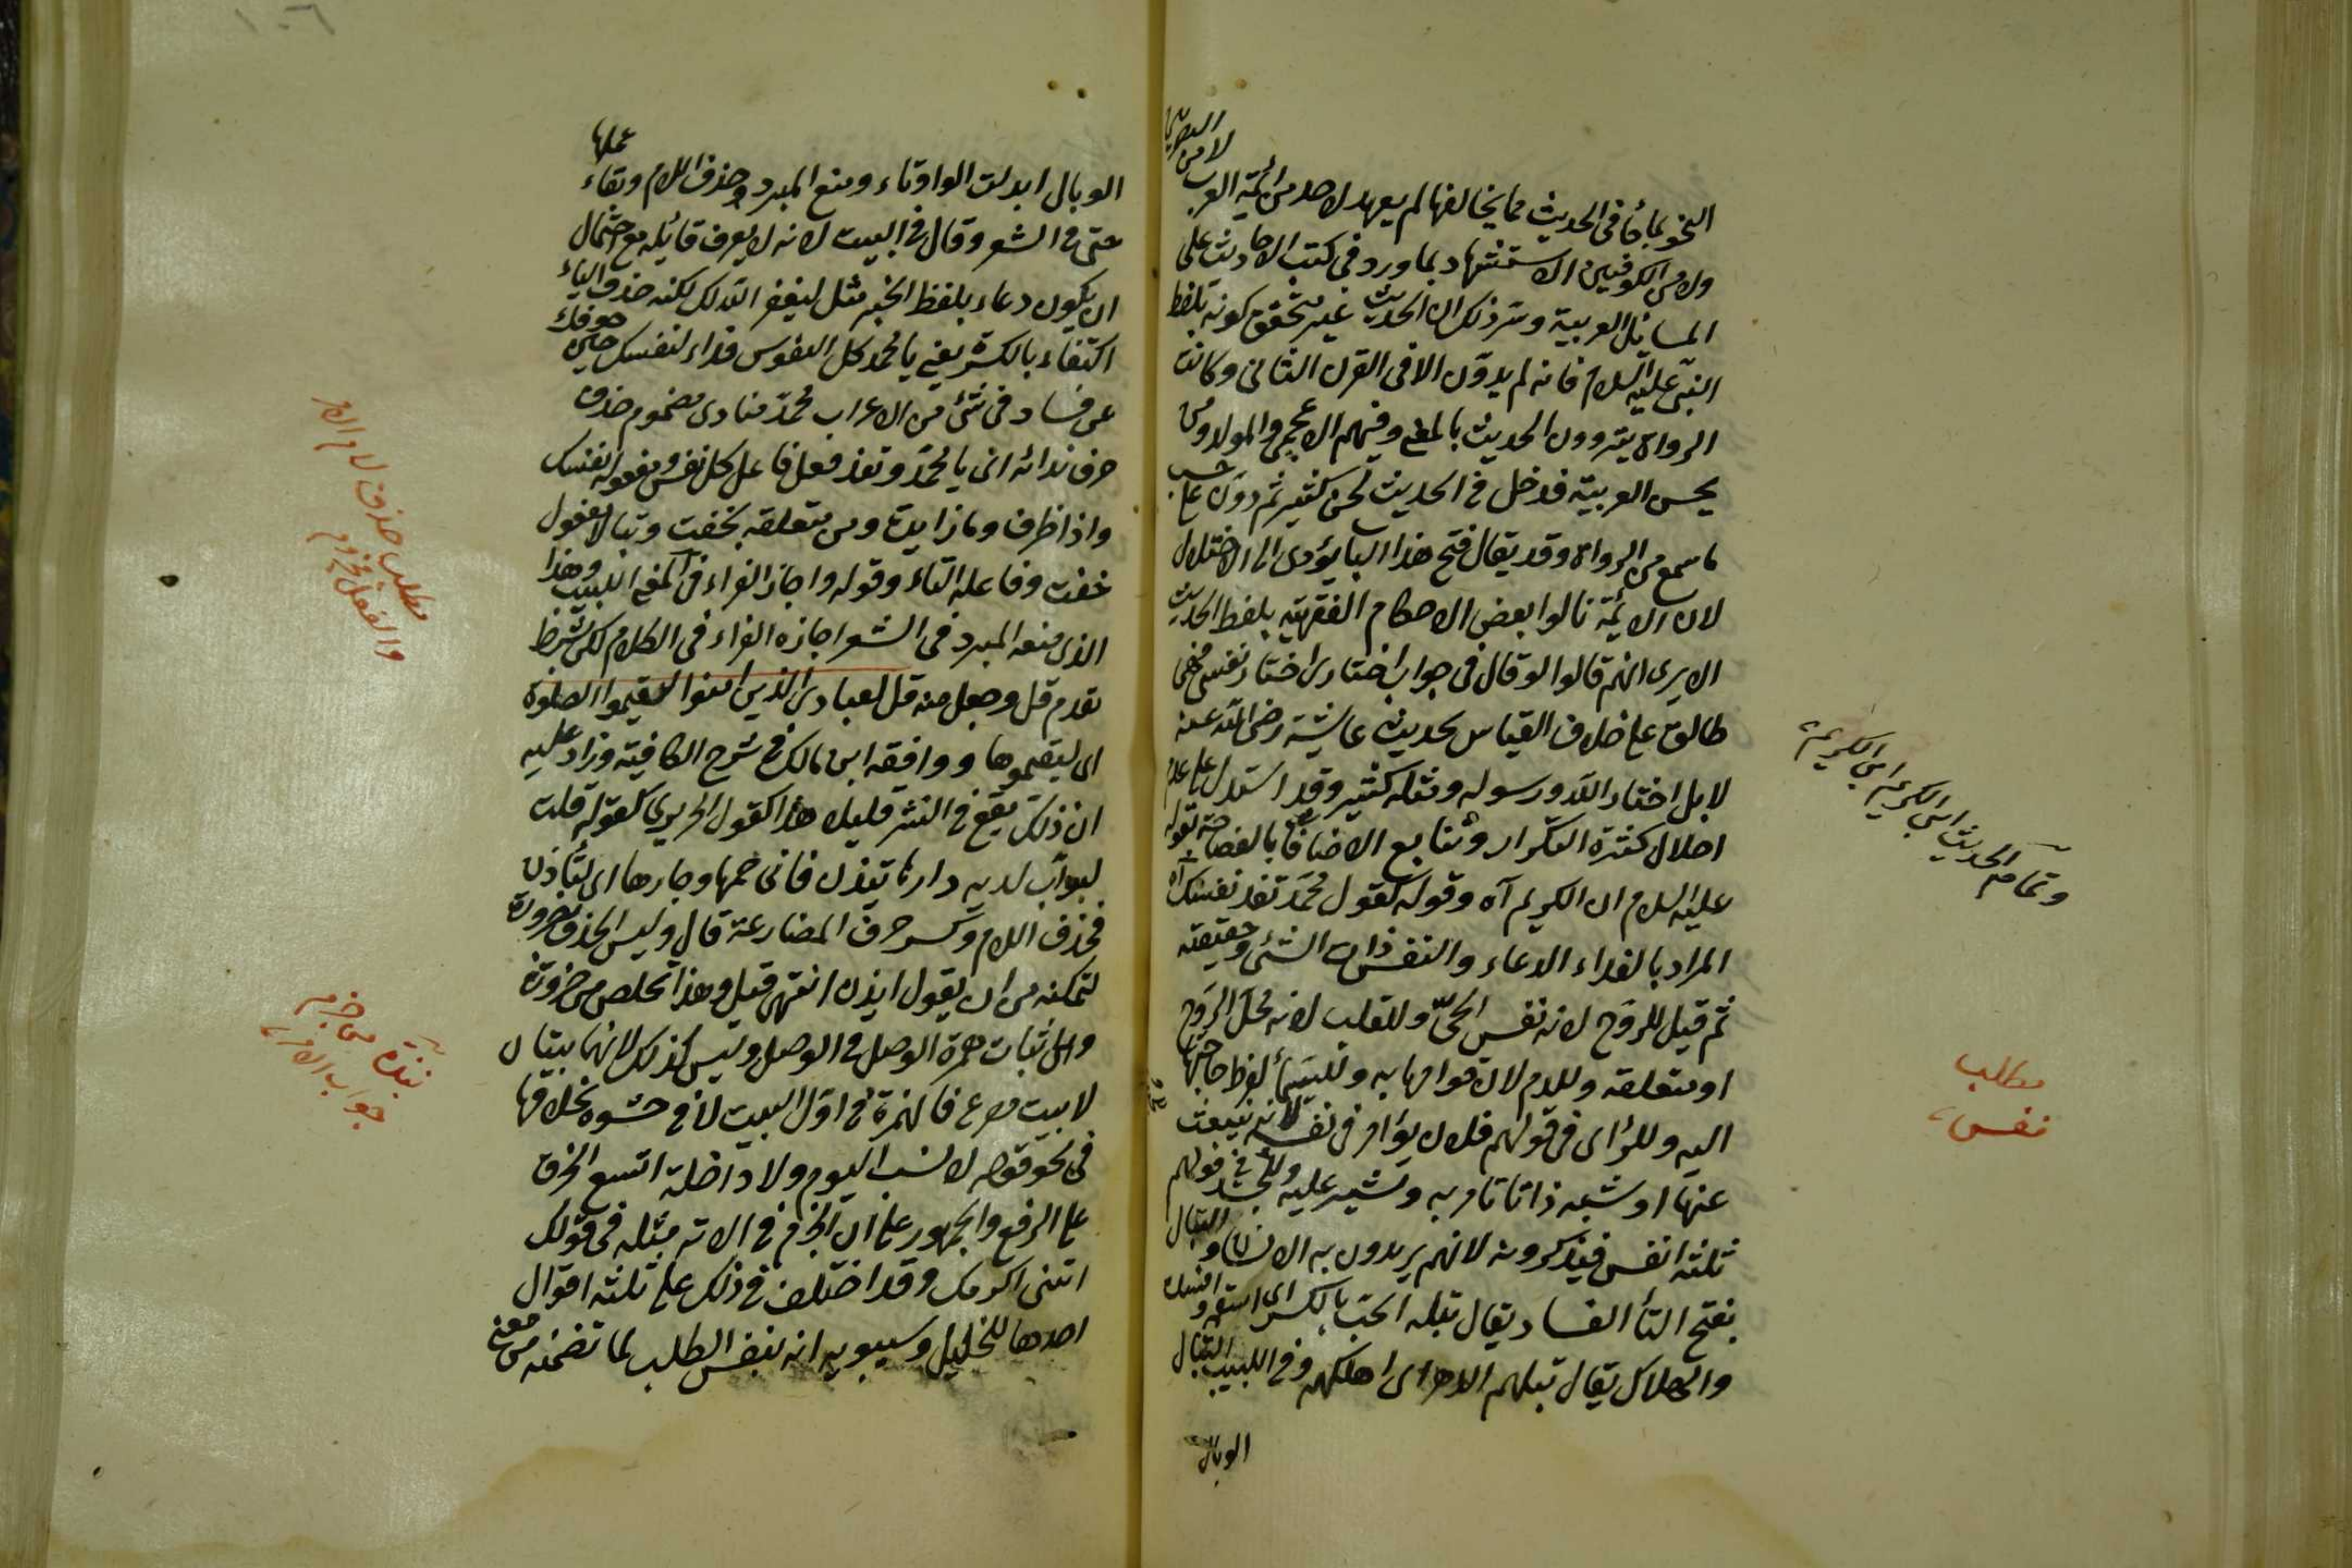 النحو بما جأ فى الحديث مما يخالفها لم يعهد لاحد من ائمة العرب لا من البصريين
ولا من الكوفيين الاستشهاد بما ورد فى كتب الاحاديث على
المسائل العربية وسر ذلك ان الحديث غير متحقق كونه بلفظ
النبى عليه السلام فانه لم يدون الا فى القرن الثانى وكانت
الرواة يتروون الحديث بالمعنى وفيهم الاعجمى والمولد ومن
يحسن العربية فدخل فى الحديث لحن كثير ثم دون على حسب
ما سمع من الرواة وقد يقال فتح هذا الباب يؤدى الى الاختلال
لان الائمة نالوا بعض الاحكام الفقهية بلفظ الحديث
الا يرى انهم قالوا لو قال فى جواب اختارى اختار نفسى فهى
طالق على خلاف القياس بحديث عايشة رضى الله عنه
لا بل اختار الله ورسوله ومثله كثير وقد استدل على عدم
اخلال كثرة التكرار وتتابع الاضافات بالفصاحة بقوله
عليه السلام ان الكريم آه وقوله كقول محمد تفد نفسك آه
المراد بالفداء الدعاء والنفس ذات الشئ وحقيقته
ثم قيل للروح لانه نفس الحى وللقلب لانه محل الروح
او متعلقه وللدم لان قوامها به وللمأ لفرط حاجتها
اليه وللرأى فى قولهم فلان يؤامر فى نفسه لانه ينبعث
عنها او شبه ذاتا تامر به وتشير عليه وللجسد فى قولهم
ثلثة انفس فيذكرونه لانهم يريدون به الانسان والتبال
بفتح التأ الفساد يقال تبله الحب بالكسر اى اسقمه وافسده
والهلاك يقال تبلهم الدهر اى اهلكهم وفى اللبيب التبال
الوبال
وتمامه الحديث ابن الكريم ابن الكريم
مطلب
نفس
الوبال ابدلت الواو تاء ومنع المبرد حذف اللام وبقاء عملها
حتى فى الشعر وقال فى البيت لانه لا يعرف قائله مع احتمال
ان يكون دعاء بلفظ الخبر مثل ليغفر الله لك لكنه حذف الياء
اكتفاء بالكسرة يعنى يا محمد كل النفوس فداء لنفسك حين خوفك
عن فساد فى شئ من الاعراب محمد منادى مضموم حذف
حرف ندائه اى يا محمد وتفد فعل فاعل كل نفس ومفعوله نفسك
واذا ظرف وما زايدة ومن متعلقه بخفت وتبالا مفعول
خفت وفاعله التاء وقوله واجاز الفراء فى المغنى اللبيب وهذا
الذى منعه المبرد فى الشعر اجازه الفراء فى الكلام لكن بشرط
تقدم قل وجعل منه قل لعبادى الذين امنوا يقيموا الصلوة
اى ليقيموها ووافقه ابن مالك فى شرح الكافية وزاد عليه
ان ذلك يقع فى النثر قليلا هذا كقول الحريرى كقوله قلت
لبواب لديه دارها تيذن فانى حمها وجارها اى لتأذن
فحذف اللام وكسر حرف المضارعة قال وليس الحذف ضرورة
لتمكنه من ان يقول ايذن انتهى قيل وهذا تخلص من ضرورة
واثبات همزة الوصل فى الوصل وليس كذلك لانهما بيتان
لا بيت مصرع فالهمزة فى اول البيت لا فى حشوه بخلافها
فى نحو قوله لا نسب اليوم ولا داخلة اتسع الخرق
على الرفع والجمهور على ان الجزم فى الاية مثله فى قولك
ائتنى اكرمك وقد اختلف فى ذلك على ثلثة اقوال
احدها للخليل وسيبويه انه بنفس الطلب لما تضمنه من معنى
مطلب حذف لام الامر
والفعل مجزوم
نبذة من جزم
جواب الامر